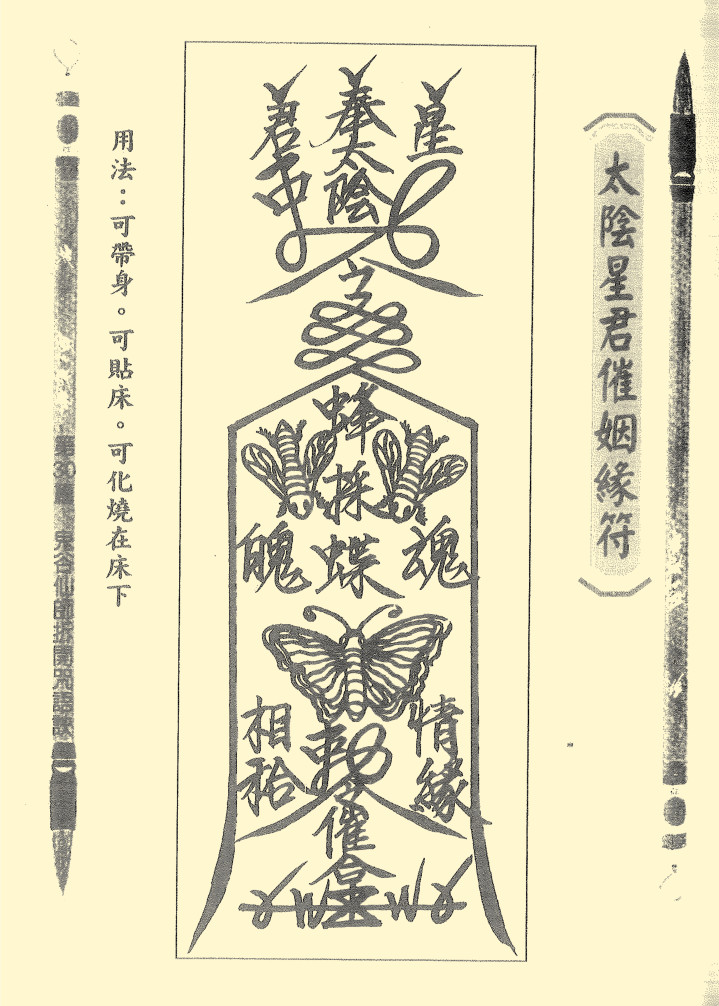 太陰星君催姻緣符
星
奉太陰
君
蜂採蝶
魂
魄
情緣
相
催
用法：可帶身。可貼床。可化燒在床下
第30篇 鬼谷仙師拆開咒語訣